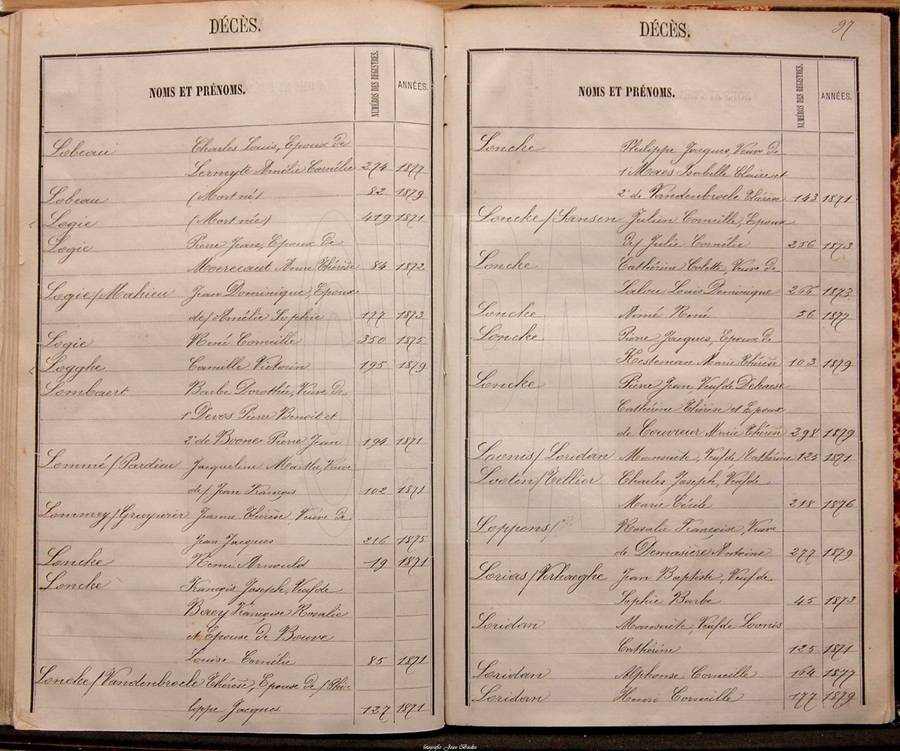 DÉCÈS.
NOMS ET PRÉNOMS. NUMÉROS DES REGISTRES. ANNÉES.
Lobeau Charles Louis, Epoux de
Lermyte Amélie Cornélie 274 1877
Lobeau (Mort né) 82 1879
Logie (Mort née) 419 1871
Logie Pierre Jean, Epoux de
Moereaut Anne Thérèse 84 1872
Logie/Mahieu Jean Dominique, Epoux
de/Amélie Sophie 177 1873
Logie René Corneille 350 1875
Logghe Camille Victorin 195 1879
Lombaert Barbe Dorothée, Veuve de
1° Devos Pierre Benoit et
2° de Boone Pierre Jean 194 1871
Lommé/Pardieu Jacqueline Marthe, Veuve
de/Jean François 102 1871
Lommey/Gruyaier Jeanne Thérèse, Veuve de
Jean Jacques 216 1875
Loncke Henri Arnould 19 1871
Loncke François Joseph, Veuf de
Baey Françoise Rosalie
et Epouse de Bouve
Louise Cornélie 85 1871
Loncke/Vandenbrocle Thérèse, Epouse de/Phi-
lippe Jacques 127 1871
DÉCÈS. 97
NOMS ET PRÉNOMS. NUMÉROS DES REGISTRES. ANNÉES.
Loncke Philippe Jacques, Veuf de
1° Maes Isabelle Claire et
2° de Vandenbrocle Thérèse 143 1871
Loncke/Jansen Julien Corneille, Epoux
de/Julie Cornélie 256 1873
Loncke Cathérine Colette, Veuve de
Lalou Louis Dominique 266 1873
Loncke Aimé René 36 1877
Loncke Pierre Jacques, Epoux de
Hesteman Marie Thérèse 103 1879
Loncke Pierre Jean, Veuf de Dehaese
Cathérine Thérèse et Epoux
de Couvreur Marie Thérèse 298 1879
Loonis/Loridan Mansuète, Veuf de/Cathérine 125 1871
Looten/Tellier Charles Joseph, Veuf de
Marie Cécile 218 1876
Loppens/ Rosalie Françoise, Veuve
de Demasière Antoine 277 1879
Lorias/Verhaeghe Jean Baptiste, Veuf de
Sophie Barbe 45 1873
Loridan Mansuète, Veuf de Loonis
Cathérine 125 1871
Loridan Alphonse Corneille 164 1877
Loridan Henri Corneille 177 1879